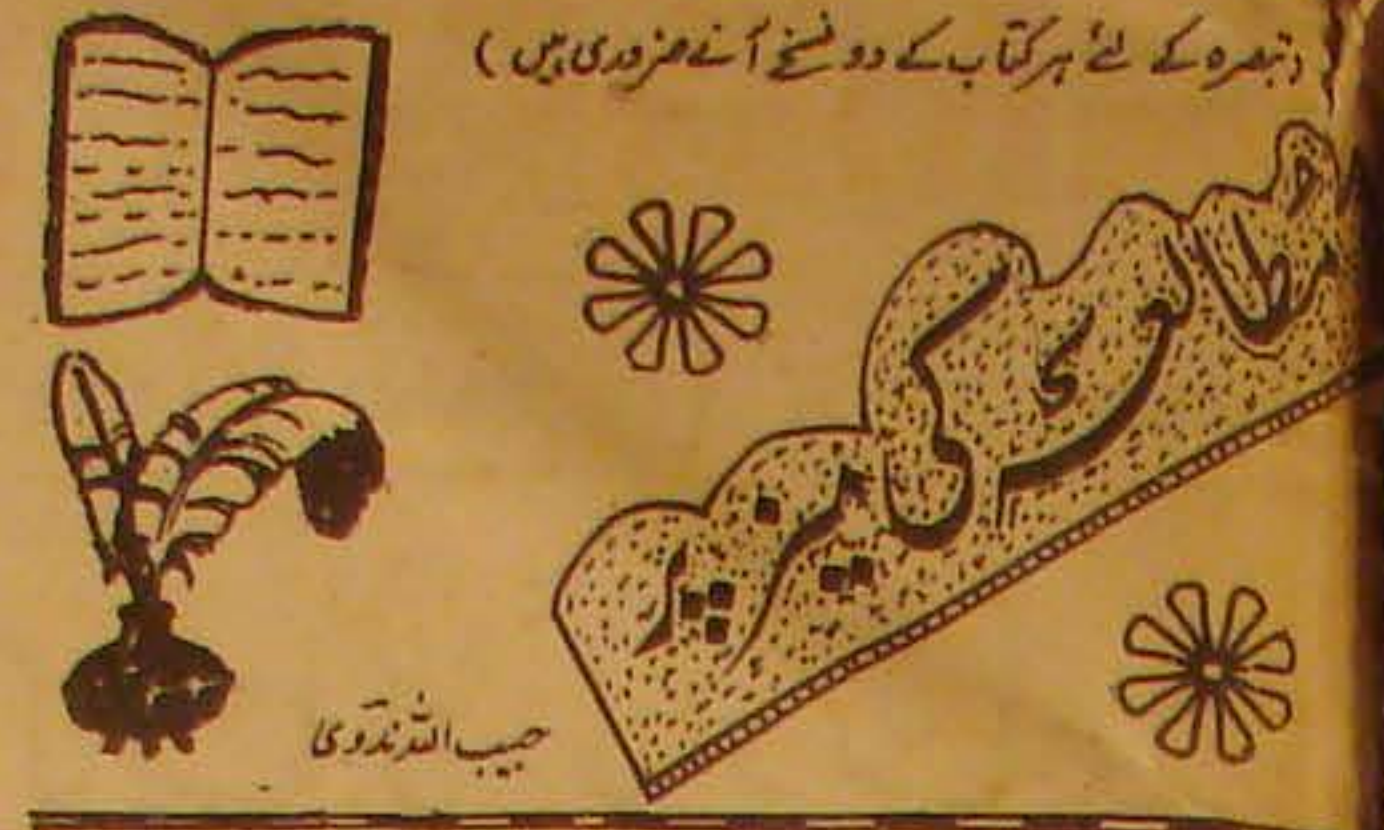 (تبصرہ کے لئے ہر کتاب کے دو نسخے آنے ضروری ہیں)
مطالعہ کی میز پر
حبیب اللہ ندوی